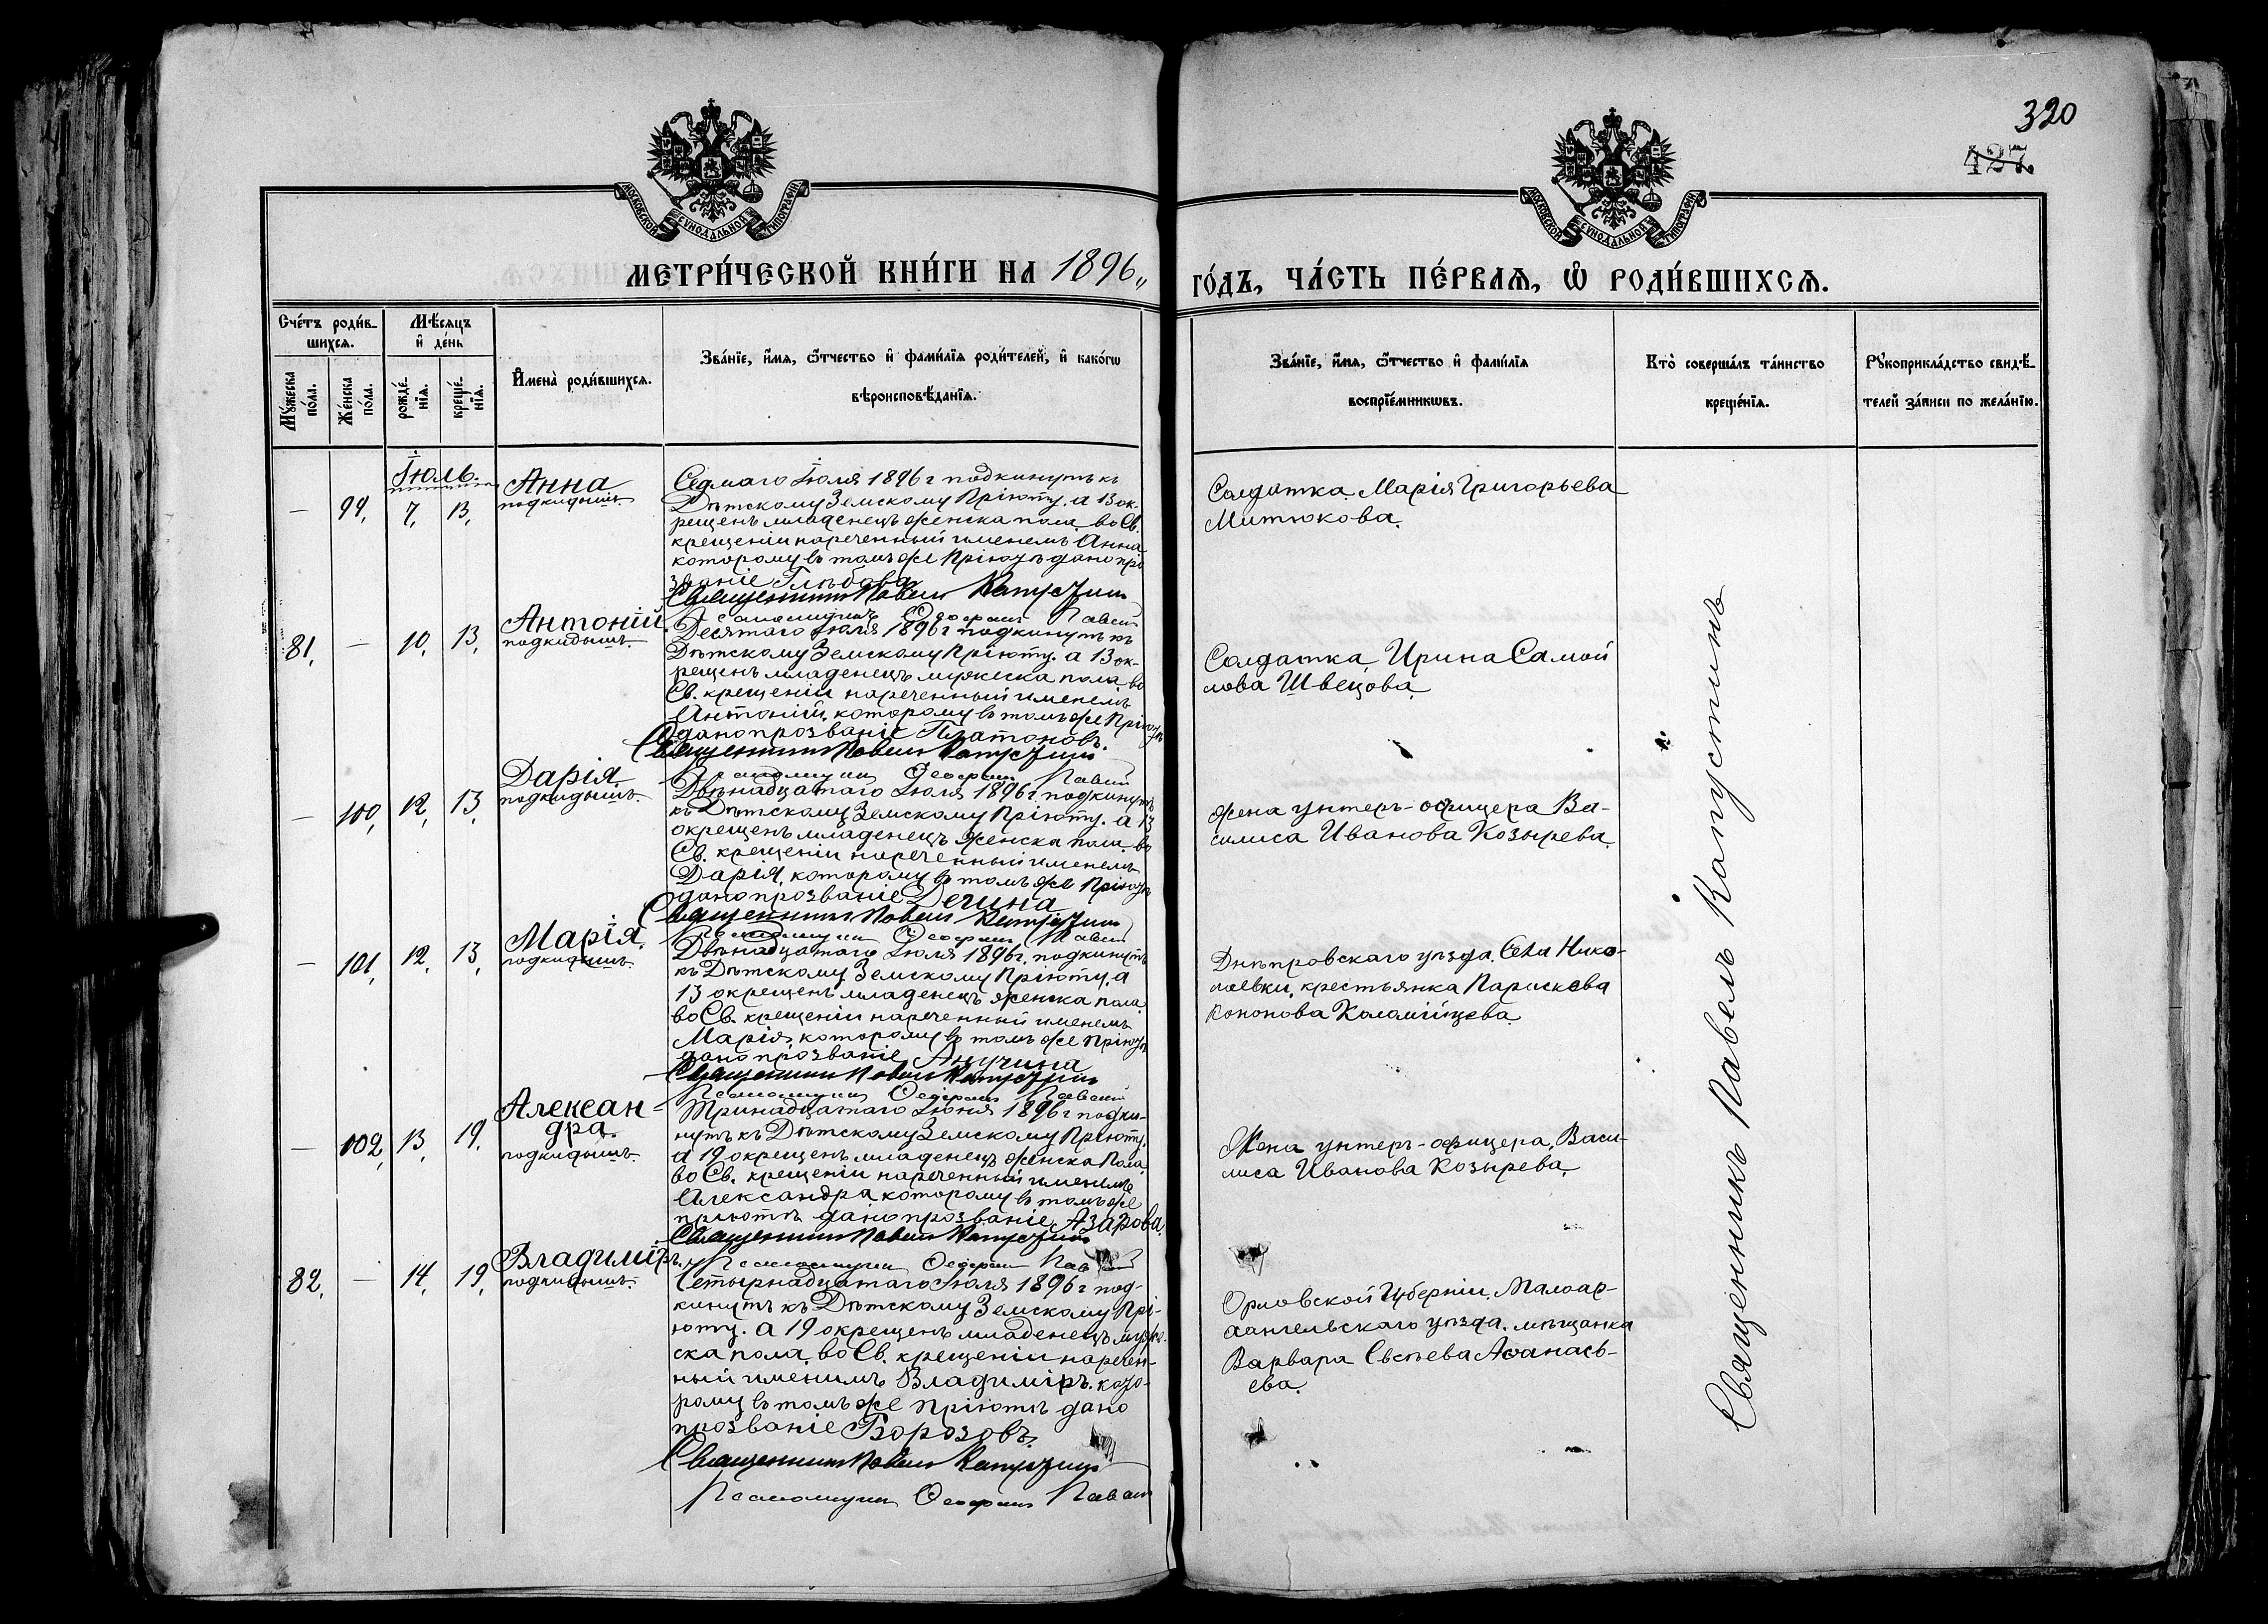 320
427
МОСКОВСКОЙ СѴНОДАЛЬНОЙ ТИПОГРАФІИ
МОСКОВСКОЙ СѴНОДАЛЬНОЙ ТИПОГРАФІИ
МЕТРИ́ЧЕСКОЙ КНИ́ГИ НА 1896„ ГО́ДЪ, ЧА́СТЬ ПЕ́РВАѦ, Ѽ РОДИ́ВШИХСѦ.
Сче́тъ роди́в-
шихсѧ.
Мѣ́сѧцъ
и҆ де́нь
Мꙋ́жеска
по́ла.
Же́нска
по́ла.
рожде́-
нїѧ.
креще́-
нїѧ.
И҆мена̀ роди́вшихсѧ.
Зва́нїе, и҆́мѧ, ѻ҆́тчество и҆ фами́лїѧ роди́телей, и҆ како́гѡ
вѣроисповѣ́данїѧ.
Зва́нїе, и҆́мѧ, ѻ҆́тчество и҆ фами́лїѧ
воспрїе́мникѡвъ.
Кто̀ соверша́лъ та́инство
креще́нїѧ.
Рꙋкоприкла́дство свидѣ́-
телей за́писи по жела́нїю.
Іюль.
— 99, 7, 13,
Анна
подкидышъ.
Седмаго Іюля 1896 г подкинутъ къ
Дѣтскому Земскому Пріюту. а 13 ок-
рещенъ младенецъ женска пола во Св.
крещеніи нареченный именемъ Анна
которому въ томъ же Пріютѣ дано про
званіе Глѣбова
Священникъ Павелъ Капустинъ
Псаломщикъ
Солдатка Марія Григорьева
Митюкова.
81, — 10, 13,
Антоній
подкидышъ.
Десятаго Іюля 1896 г подкинутъ къ
Дѣтскому Земскому Пріюту. а 13 ок-
рещенъ младенецъ мужеска пола во
Св. крещеніи нареченный именемъ
Антоній, которому въ томъ же Пріютѣ
дано прозваніе Платоновъ.
Священникъ Павелъ Капустинъ
Псаломщикъ
Солдатка Ирина Самой
лова Швецова.
— 100, 12, 13,
Дарія
подкидышъ.
Двѣнадцатаго Іюля 1896 г. подкинутъ
къ Дѣтскому Земскому Пріюту. а 13
окрещенъ младенецъ женска пола во
Св. крещеніи нареченный именемъ
Дарія, которому въ томъ же Пріютѣ
дано прозваніе Дегина
Священникъ Павелъ Капустинъ
Псаломщикъ
Жена унтеръ-офицера Ва-
силиса Иванова Козырева.
— 101, 12, 13,
Марія,
подкидышъ.
Двѣнадцатаго Іюля 1896 г. подкинутъ
къ Дѣтскому Земскому Пріюту, а
13 окрещенъ младенецъ женска пола
во Св. крещеніи нареченный именемъ
Марія, которому въ томъ же Пріютѣ
дано прозваніе Анучина
Священникъ Павелъ Капустинъ
Псаломщикъ
Днѣпровскаго уѣзда. Села Нико-
лаевки, крестьянка Параскева
Кононова Коломійцева.
— 102, 13, 19,
Алексан-
дра.
подкидышъ.
Тринадцатаго Іюня 1896 г подки-
нутъ къ Дѣтскому Земскому Пріюту,
а 19 окрещенъ младенецъ женска пола
во Св. крещеніи нареченный именемъ
Александра которому въ томъ же
пріютѣ дано прозваніе Азарова.
Священникъ Павелъ Капустинъ
Псаломщикъ
Жена унтеръ-офицера, Васи-
лиса Иванова Козырева.
82, — 14, 19,
Владиміръ.
подкидышъ.
Четырнадцатаго Іюля 1896 г под-
кинутъ къ Дѣтскому Земскому Прі-
юту. а 19 окрещенъ младенецъ муже-
ска пола, во Св. крещеніи наречен-
ный именимъ Владиміръ. кото-
рому въ томъ же Пріютѣ дано
прозваніе Борозовъ.
Священникъ Павелъ Капустинъ
Псаломщикъ
Орловской Губерніи. Малоар-
хангельскаго уѣзда. мѣщанка
Варвара Евсѣева Аѳанась-
ева.
Священникъ Павелъ Капустинъ